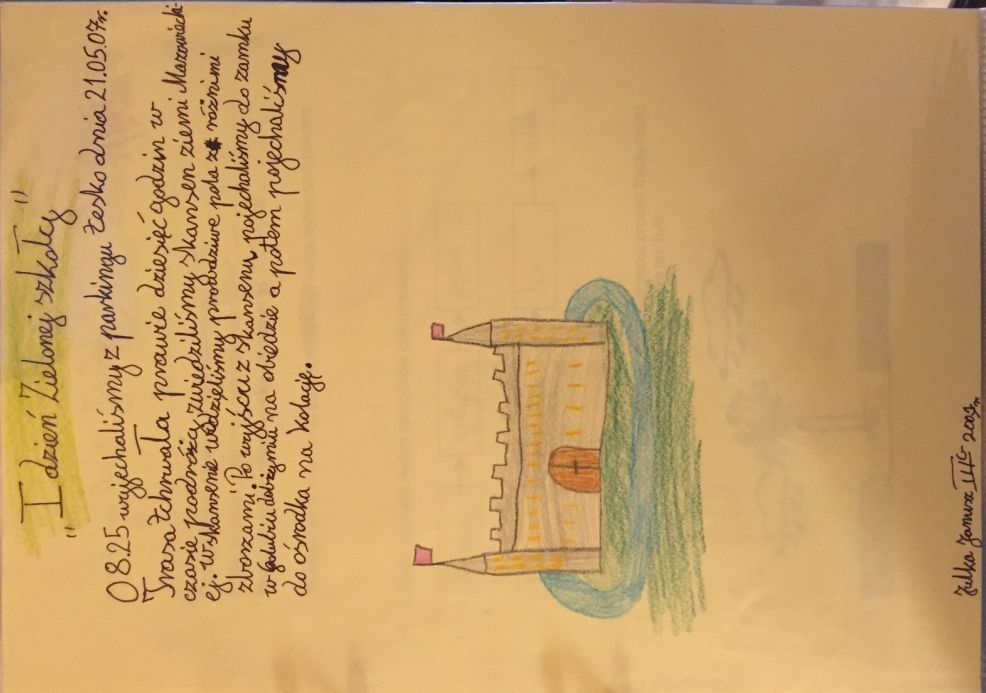 "I dzień Zielonej szkoły"
O 8.25 wyjechaliśmy z parkingu Tesko dnia 21.05.07r.
Trasa tchrwała prawie dziesięć godzin w
czasie podróży zwiedziliśmy skansen ziemi Mazowiecki-
ej. W skansenie widzieliśmy prawdziwe pola z różnimi
zborzami. Po wyjściu z skansenu pojechaliśmy do zamku
w Golubiu dobrzyniu na obiedzie a potem pojechaliśmy
do ośrodka na kolację.
Julka Janusz III 2007r